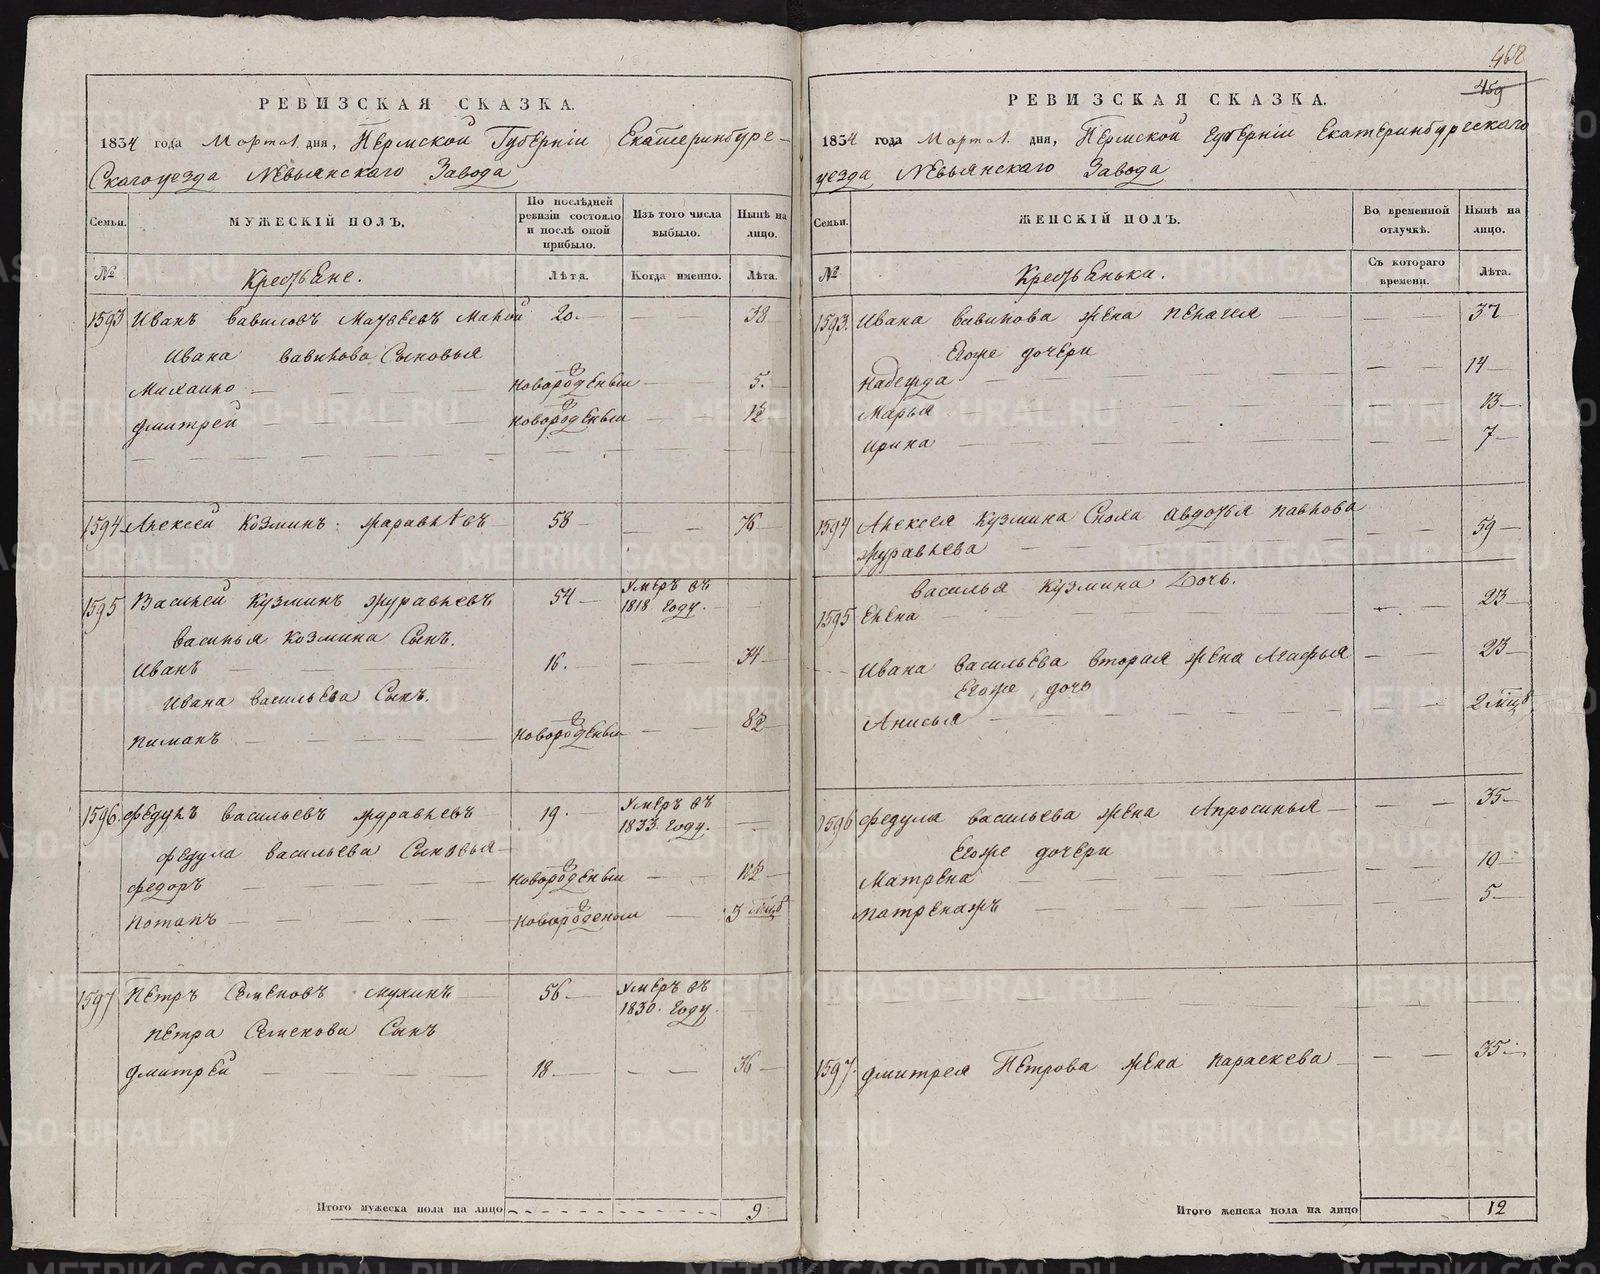 468
459
РЕВИЗСКАЯ СКАЗКА.
1834 года Марта 1. дня, Пермской Губернiи Екатеринбург-
Скаго уезда Невьянскаго Завода
Семьи.
МУЖЕСКIЙ ПОЛЪ.
По послѣдней ревизiи состояло и послѣ оной прибыло.
Изъ того числа выбыло.
Нынѣ на лицо.
№
Крестьяне.
Лѣта.
Когда именно.
Лѣта.
1593 Иванъ Вавиловъ Матвеевъ Малой 20. — — 38
Ивана Вавилова Сыновья
Михаило — — новорожденыи — — 5.
Дмитрей — — новорожденыи — — 1½
1594 Алексей Козминъ Жаравлевъ 58 — — 76
1595 Василей Кузминъ журавлевъ 54 — Умеръ въ
1818 Году.
Василья Козмина Сынъ.
Иванъ — — 16. — — 34
Ивана Васильева Сынъ.
Пиманъ — — новорожденыи — — 8½
1596. Федулъ Васильевъ журавлевъ 19. Умеръ въ
1833. Году.
Федула Васильева Сыновья
Федоръ — — новорожденыи — —
Потапъ — — новорожденыи — 3 мцъ
1597 Петръ Семеновъ Мухинъ 56. — Умеръ въ
1830. Году.
Петра Семенова Сынъ
Дмитрей — — 18 — — — 36
Итого мужеска пола на лицо 9
РЕВИЗСКАЯ СКАЗКА.
1834 года Марта 1. дня, Пермской Губернiи Екатеринбургскаго
уезда Невьянскаго Завода
Семьи.
ЖЕНСКIЙ ПОЛЪ.
Во временной отлучкѣ.
Нынѣ на лицо.
№
Крестьянька.
Съ котораго времени.
Лѣта.
1593. Ивана Вавилова жена Пелагея — — 37
Егоже дочери
Надежда — — 14
Марья — — 13
Ирина — — 7
1594 Алексея Кузмина Сноха Авдотья Павлова
Журавлева — — 59
Василья Кузмина Дочь.
1595 Елена — — 23
Ивана Васильева вторая жена Агафья — — 23
Егоже дочь
Анисья — — 2 мцъ
1596 Федула Васильева жена Апросинья — — 35
Егоже дочери
Матрена — — 10
Матрена жъ — — 5
1597. Дмитрея Петрова жена Параскева — — 35
Итого женска пола на лицо 12
METRIKI.GASO-URAL.RU